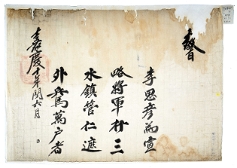 教旨
李思彦爲宣
略將軍行三
水鎮管仁遮
外兵馬萬戶者
嘉慶十年閏六月